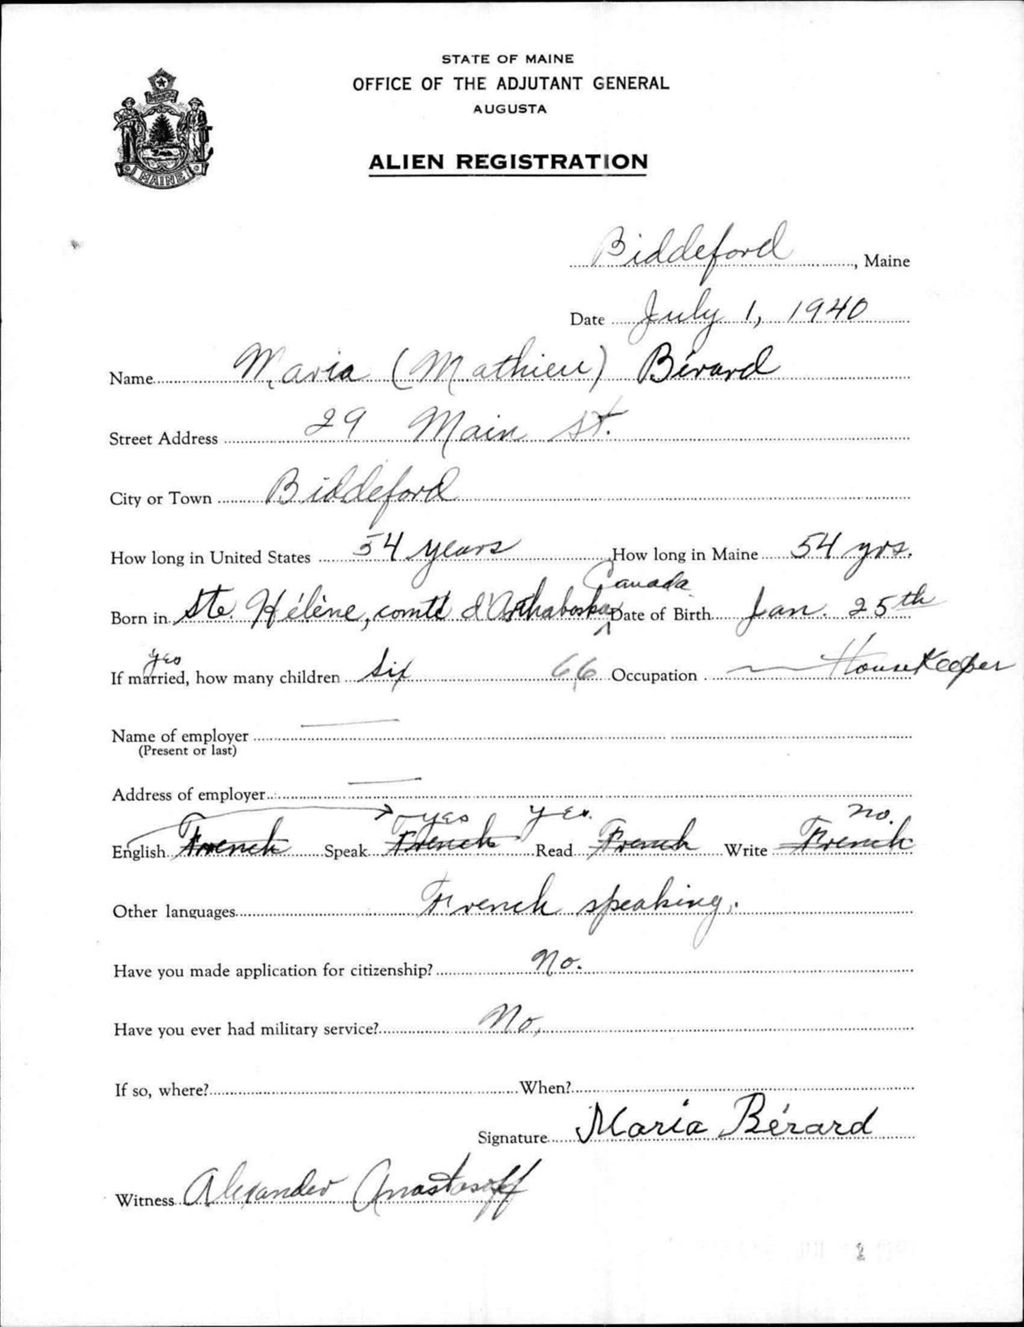 STATE OF MAINE
OFFICE OF THE ADJUTANT GENERAL
AUGUSTA
MAINE
ALIEN REGISTRATION
Biddeford, Maine
Date July 1, 1940
Name Maria (Mathieu) Bérard
Street Address 29 Main St.
City or Town Biddeford
How long in United States 54 years How long in Maine 54 yrs.
Canada
Born in Ste. Hélène, comté d'Arthabaska Date of Birth Jan. 25th
yes
If married, how many children Six 66 Occupation HouseKeeper
Name of employer
(Present or last)
Address of employer
yes yes. no.
English French Speak French Read French Write French
Other languages French speaking.
Have you made application for citizenship? No.
Have you ever had military service? No.
If so, where? When?
Signature Maria Bérard
Witness Alexander Anastasoff
2